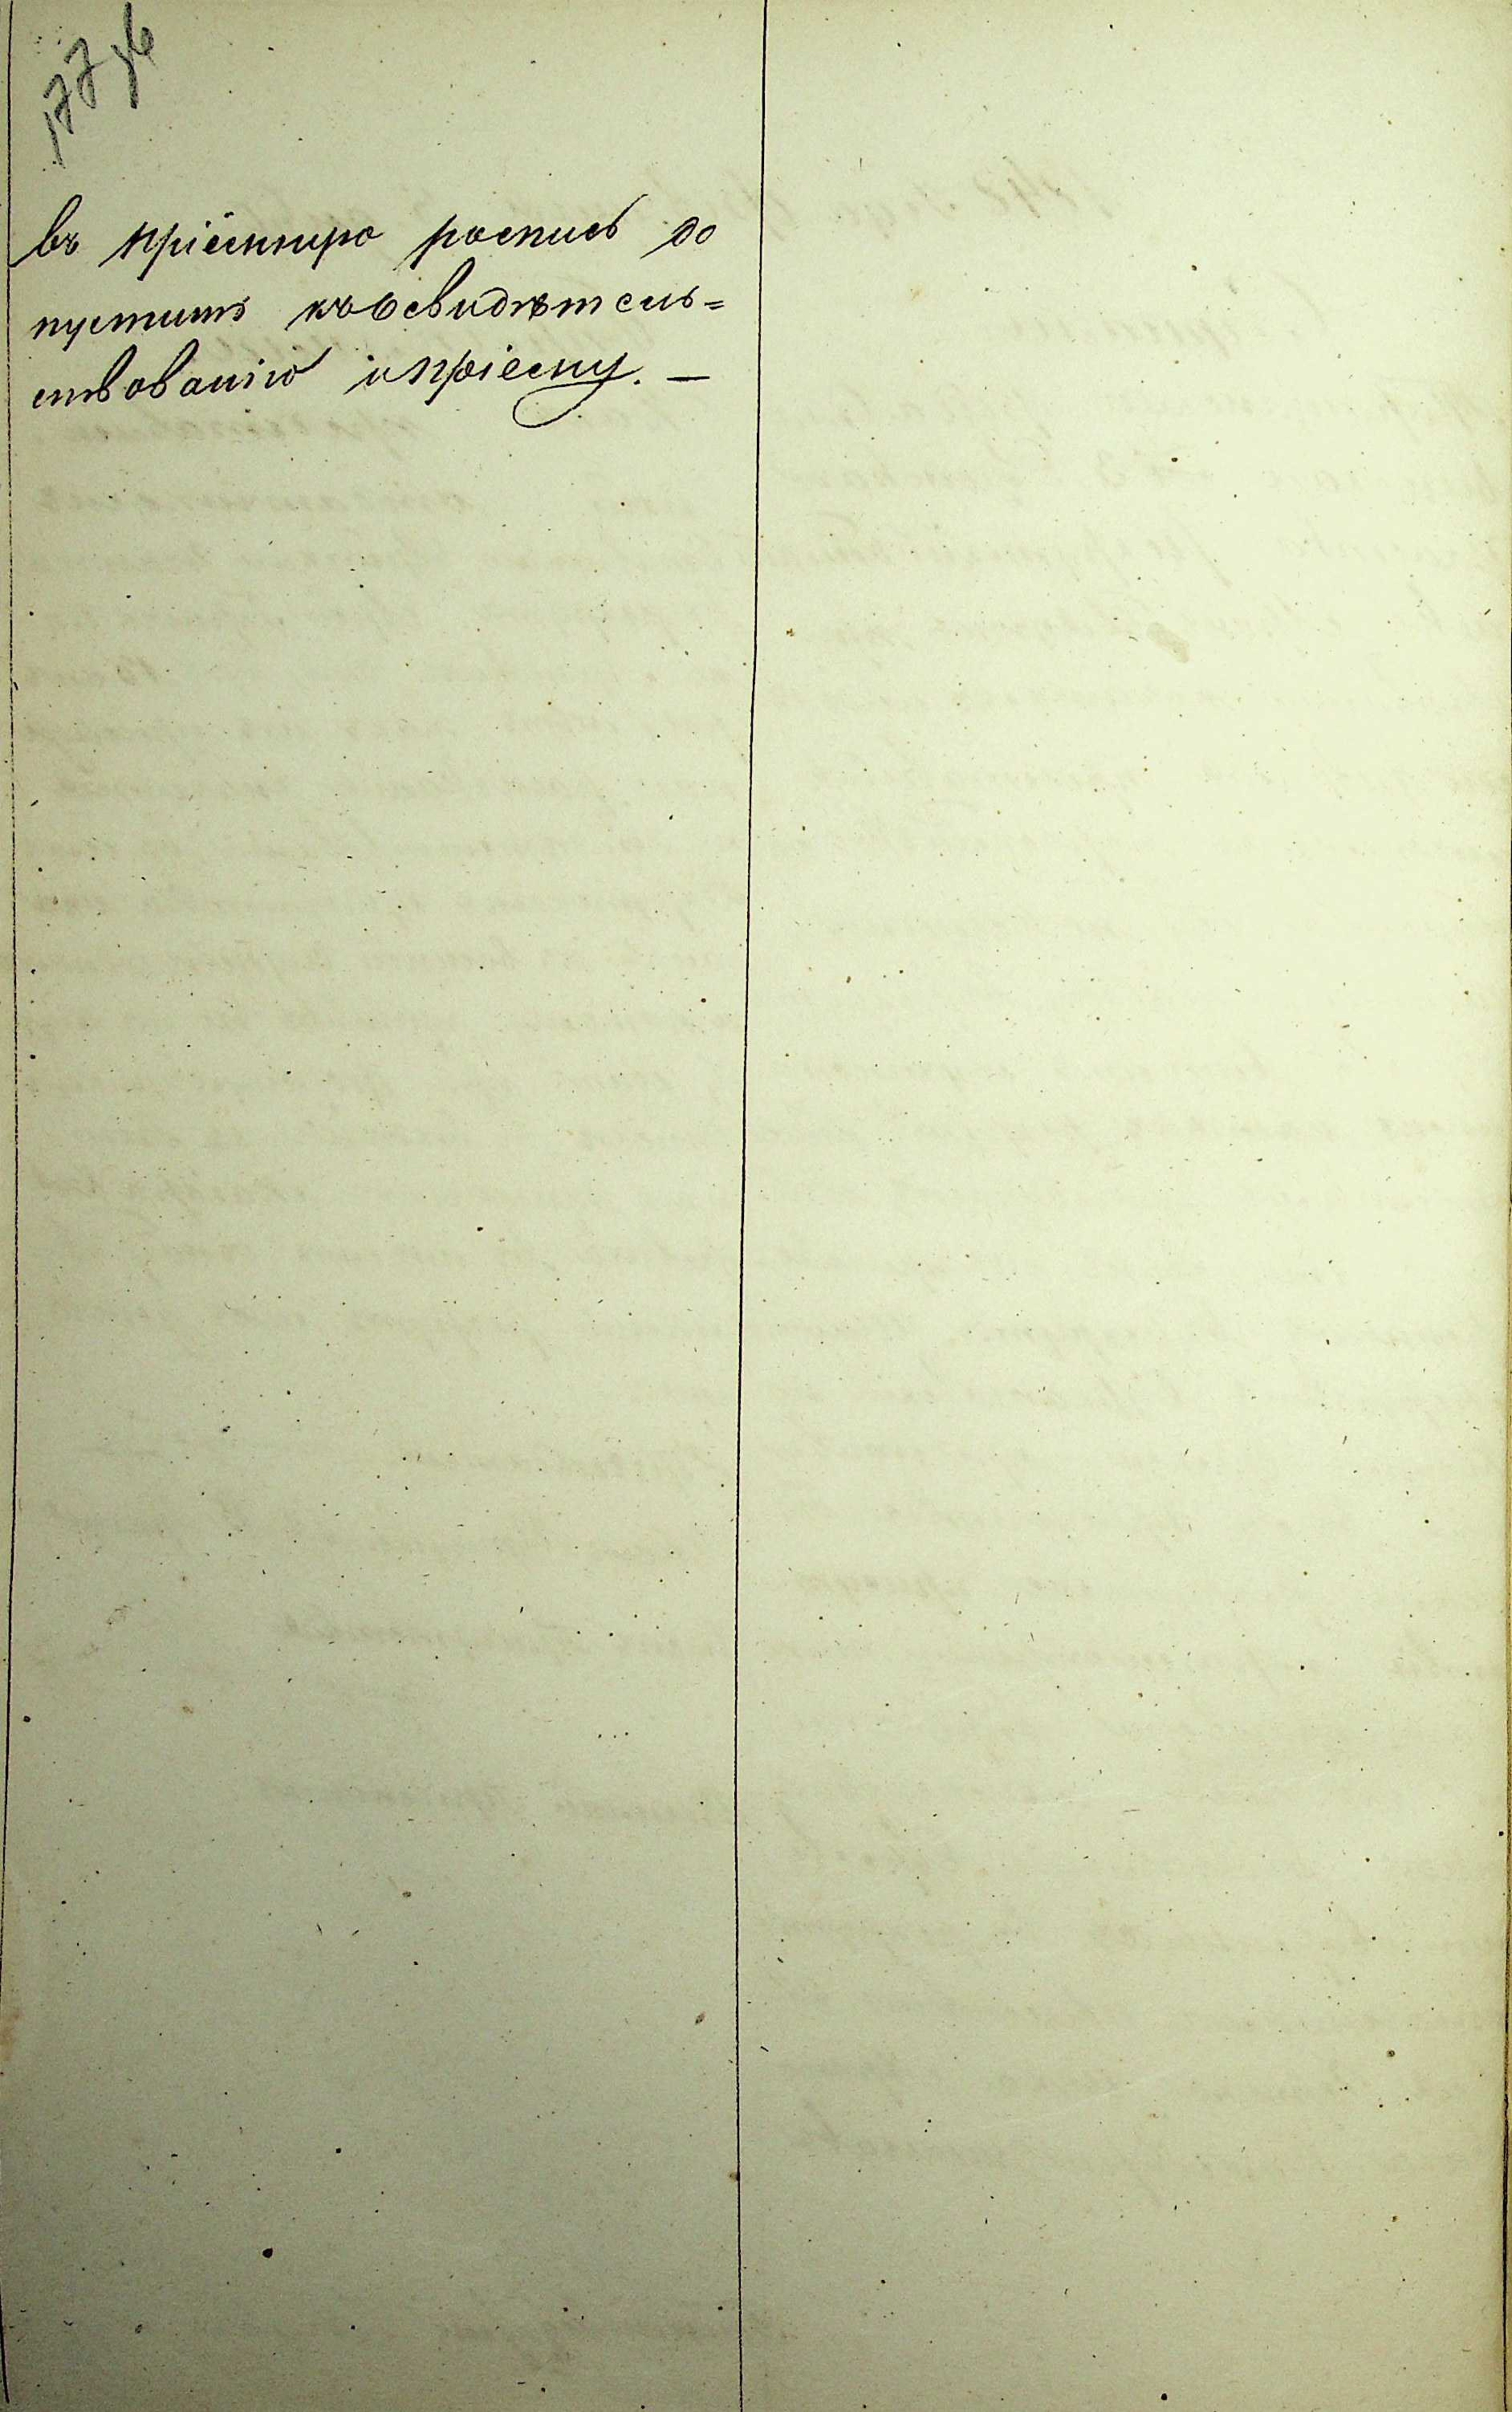 въ пріемную роспись до
пустить къ освидѣтель=
ствованію и пріему. —